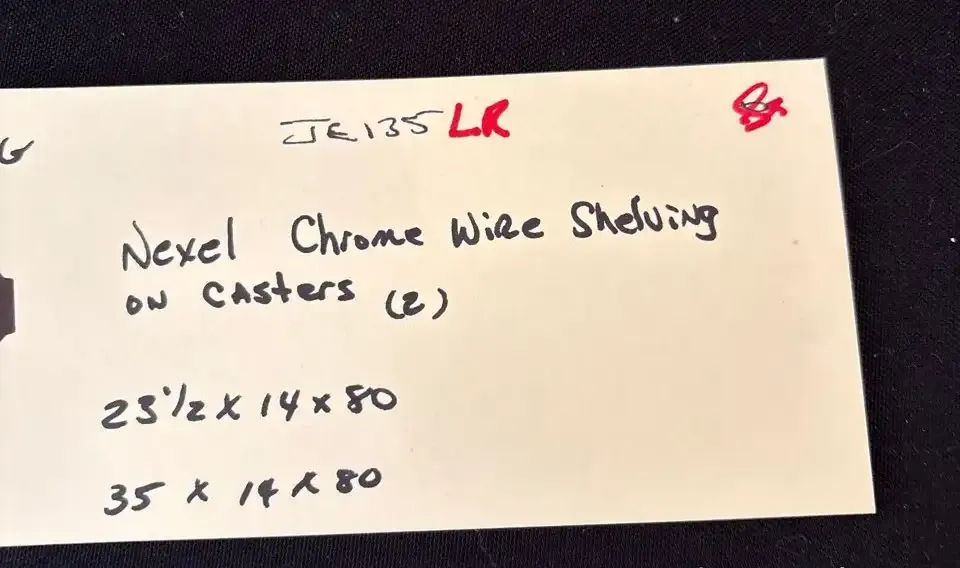 G
JE135 LR
Nexel Chrome Wire Shelving
on Casters (2)
23 1/2 x 14 x 80
35 x 14 x 80